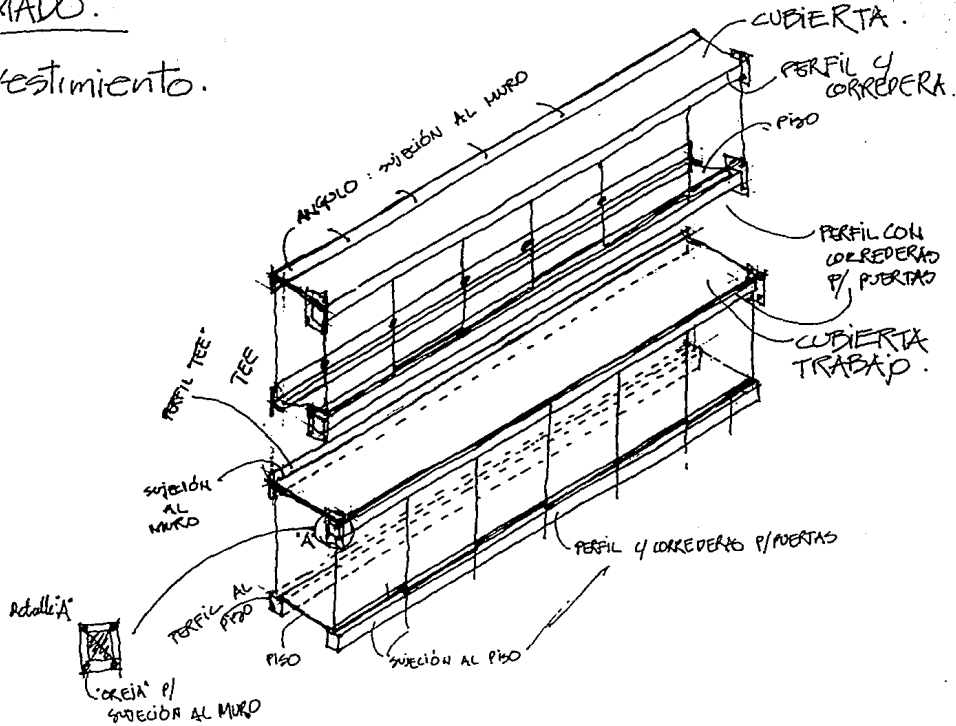 MADO.
vestimiento.
CUBIERTA.
PERFIL Y
CORREDERA.
PISO
ANGULO : SUJECIÓN AL MURO
PERFIL CON
CORREDERAS
P/ PUERTAS
CUBIERTA
TRABAJO.
PERFIL TEE"
TEE
SUJECIÓN
AL
MURO
"A"
PERFIL Y CORREDERAS P/PUERTAS
PERFIL AL
PISO
PISO
SUJECIÓN AL PISO
Detalle "A"
"OREJA" P/
SUJECIÓN AL MURO